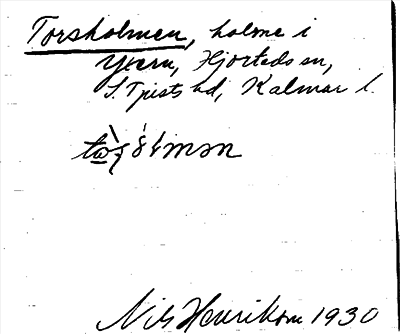 Torsholmen, holme i
Yxern, Hjorteds sn,
S. Tjusts hd, Kalmar l.
Nils Henrikson 1930